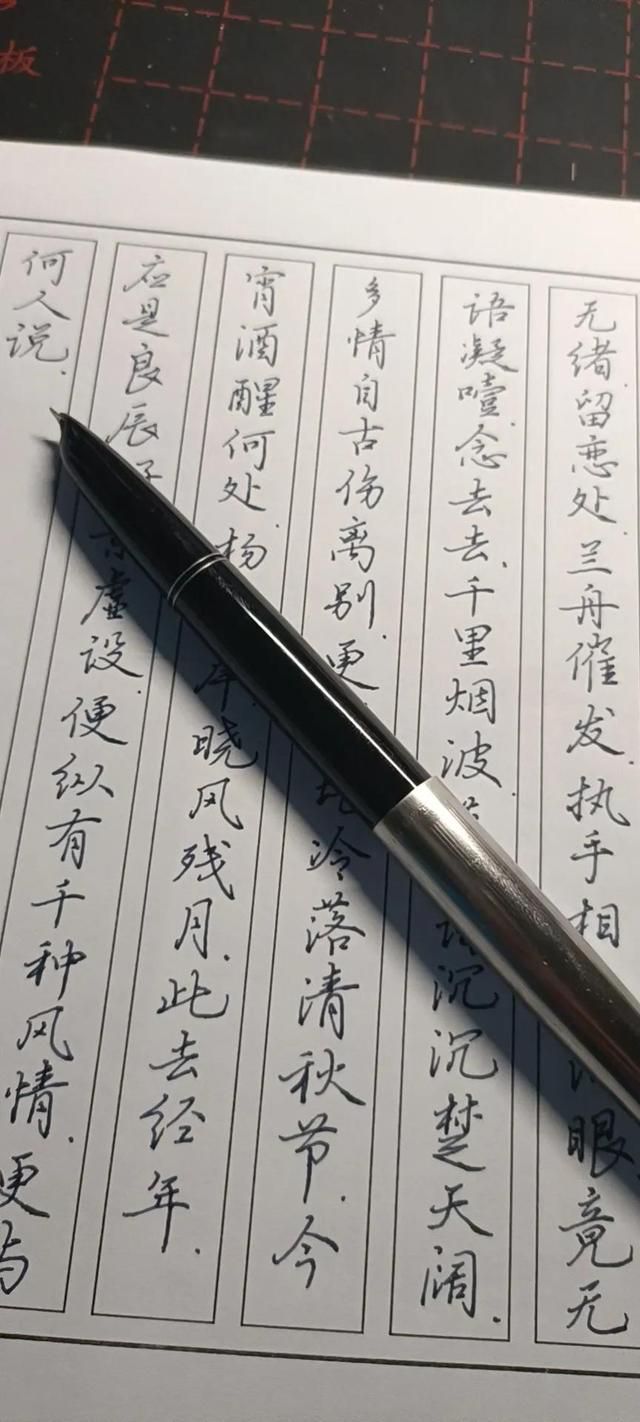 无绪.留恋处.兰舟催发.执手相眼.竟无
语凝噎.念去去.千里烟波.沉沉楚天阔.
多情自古伤离别.更冷落清秋节.今
宵酒醒何处.杨岸.晓风残月.此去经年.
应是良辰虚设.便纵有千种风情.更与
何人说.
板